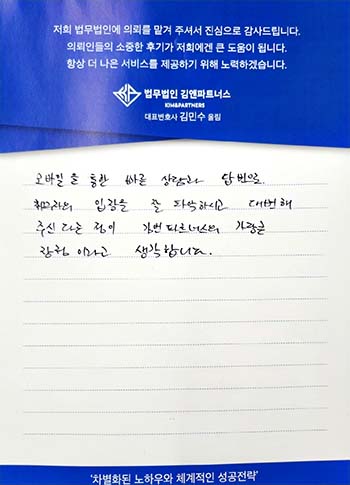 저희 법무법인에 의뢰를 맡겨 주셔서 진심으로 감사드립니다.
의뢰인들의 소중한 후기가 저희에겐 큰 도움이 됩니다.
항상 더 나은 서비스를 제공하기 위해 노력하겠습니다.
법무법인 김앤파트너스
KIM&PARTNERS
대표변호사 김민수 올림
모바일을 통한 빠른 상담과 답변으로
입장을 잘 파악하시고 대변해
주신다는 점이 김앤파트너스의 가장큰
장점이라고 생각합니다.
'차별화된 노하우와 체계적인 성공전략'